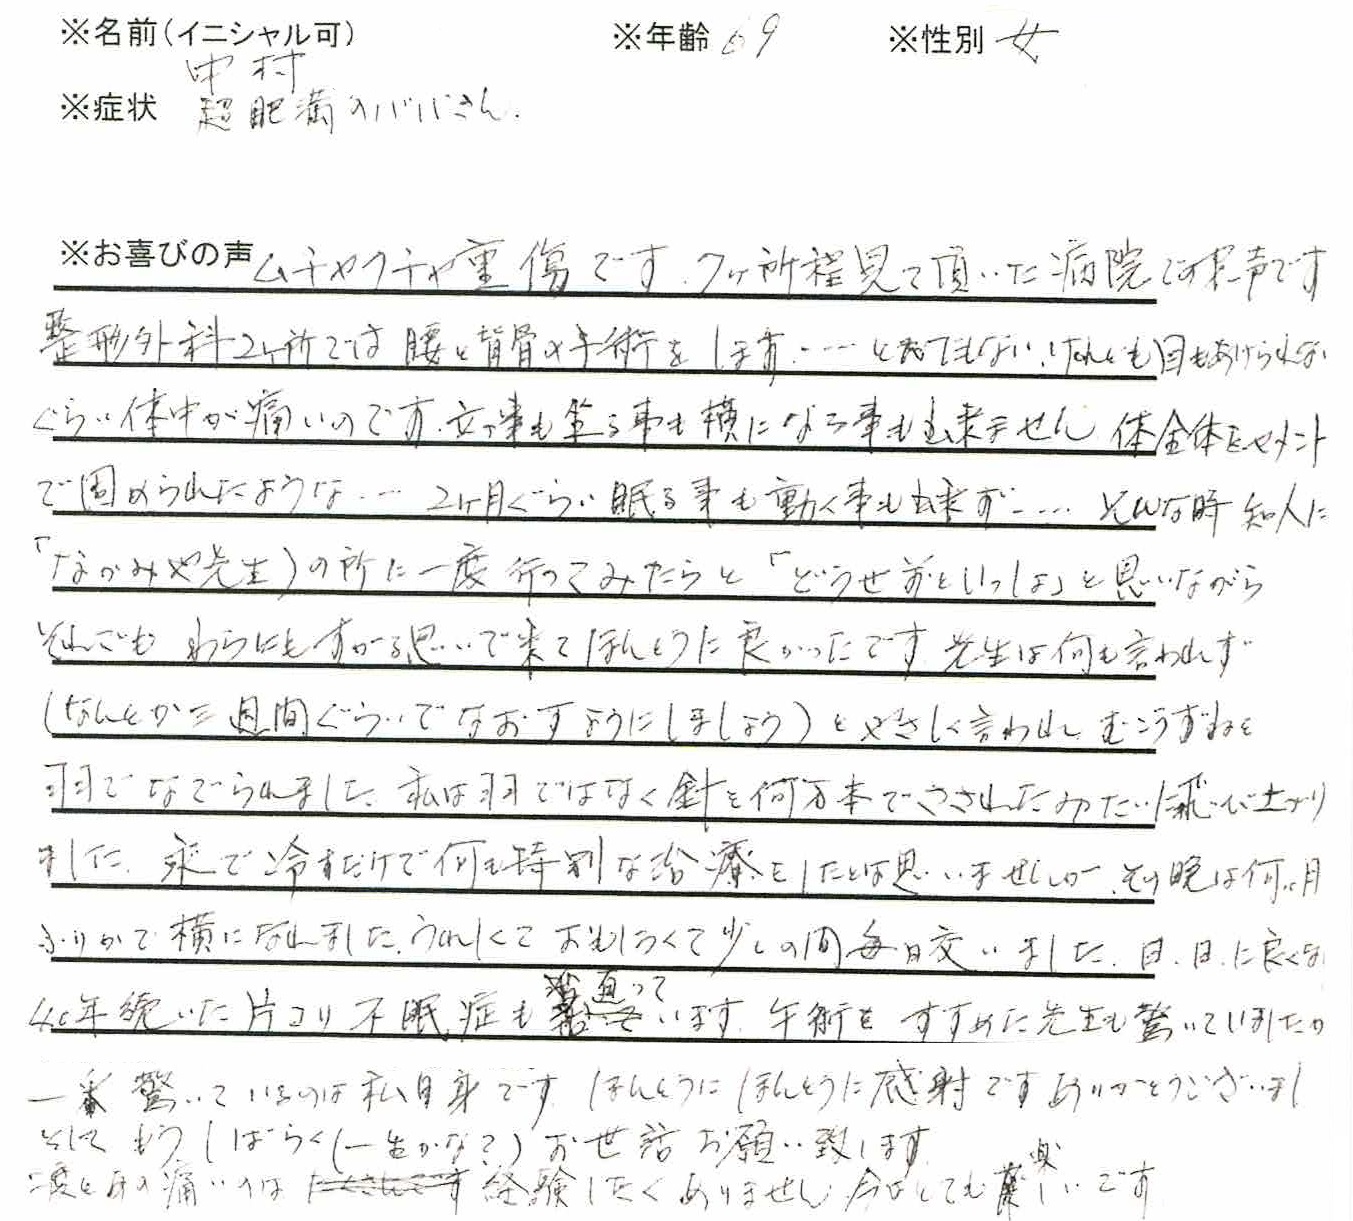 ※名前(イニシャル可) ※年齢 69 ※性別 女
中村
※症状 超肥満のババさん.
※お喜びの声 ムチャクチャ重傷です.7ヶ所程見て頂いた病院での声です
整形外科2ヶ所では腰と背骨の手術をします.…とんでもない.けれども目もあけられない
ぐらい体中が痛いのです.立つ事も坐る事も横になる事も出来ません 体全体をセメント
で固められたような… 2ヶ月ぐらい眠る事も動く事も出来ず…. そんな時知人に
「ながみや先生)の所に一度行ってみたらと「どうせ前といっしょ」と思いながら
それでも わらにもすがる思いで来てほんとうに良かったです 先生は何も言われず
(なんとか三週間ぐらいでなおすようにしましょう)とやさしく言われ むこうずねを
羽でなでられました.私は羽ではなく針を何万本でさされたみたいに飛び上がり
ました.氷で冷すだけで何も特別な治療をしたとは思いませんが.その晩は何ヶ月
ぶりかで横になれました.うれしくておもしろくて少しの間毎日交いました.日.日.に良くな
40年続いた片コリ不眠症も直っています.手術をすすめた先生も驚いていましたが
一番驚いているのは私自身です ほんとうにほんとうに感射です ありがとうございまし
そして もうしばらく(一生かな?)お世話お願い致します
二度とあの痛いのは 経験したくありません 今はとても楽しいです